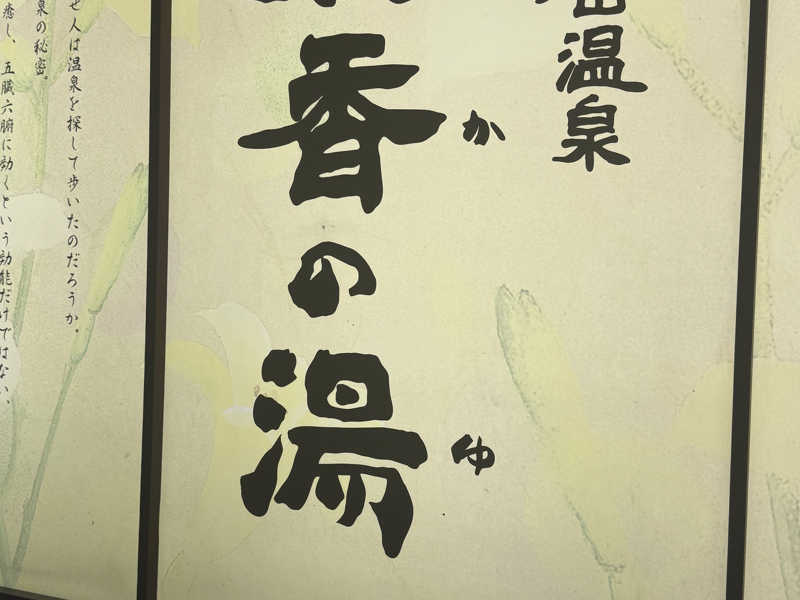 温泉
香の湯
か
ゆ
せ人は温泉を探して歩いたのだろうか。
泉の秘密。
癒し、五臓六腑に効くという効能だけではない、